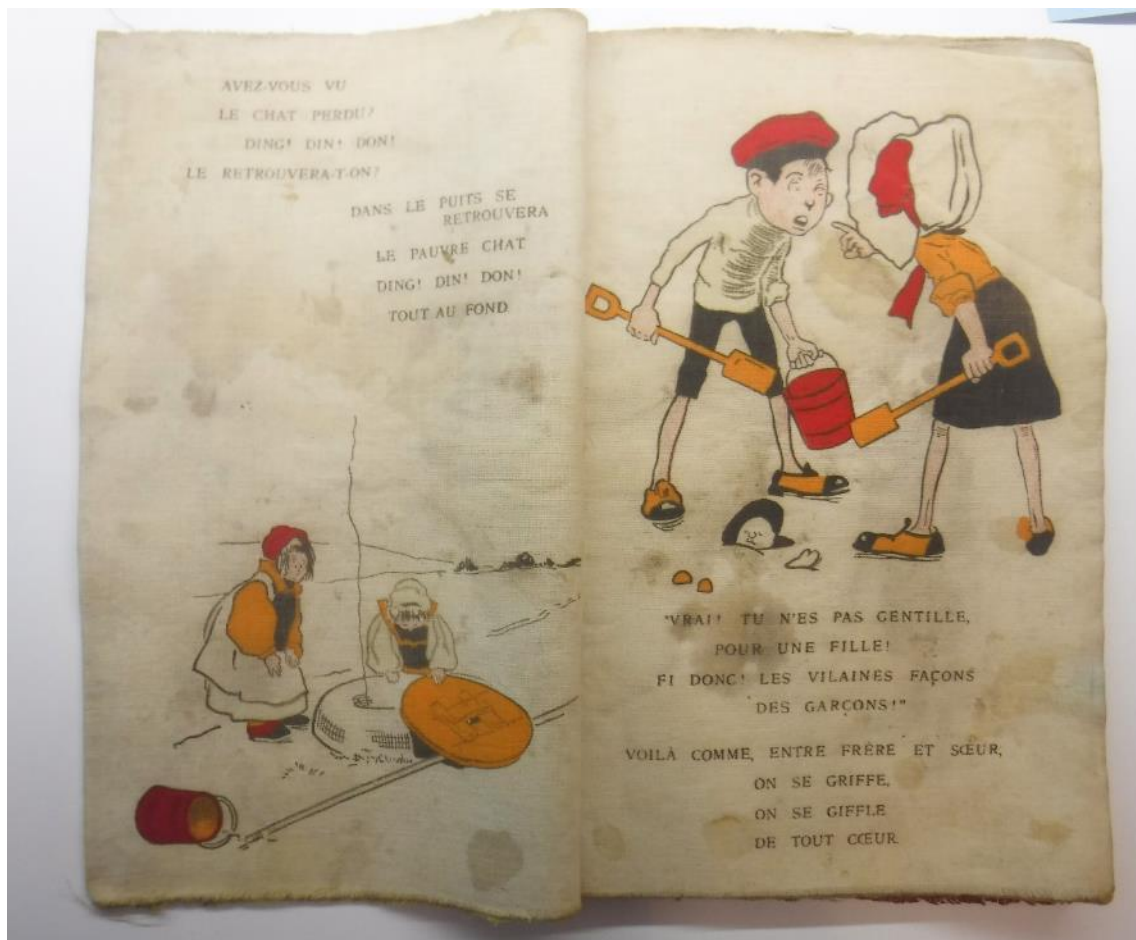 AVEZ-VOUS VU
LE CHAT PERDU?
DING! DIN! DON!
LE RETROUVERA-T-ON?
DANS LE PUITS SE
RETROUVERA
LE PAUVRE CHAT
DING! DIN! DON!
TOUT AU FOND
"VRAI! TU N'ES PAS GENTILLE,
POUR UNE FILLE!
FI DONC! LES VILAINES FAÇONS
DES GARÇONS!"
VOILÀ COMME, ENTRE FRÈRE ET SŒUR,
ON SE GRIFFE,
ON SE GIFFLE
DE TOUT CŒUR.